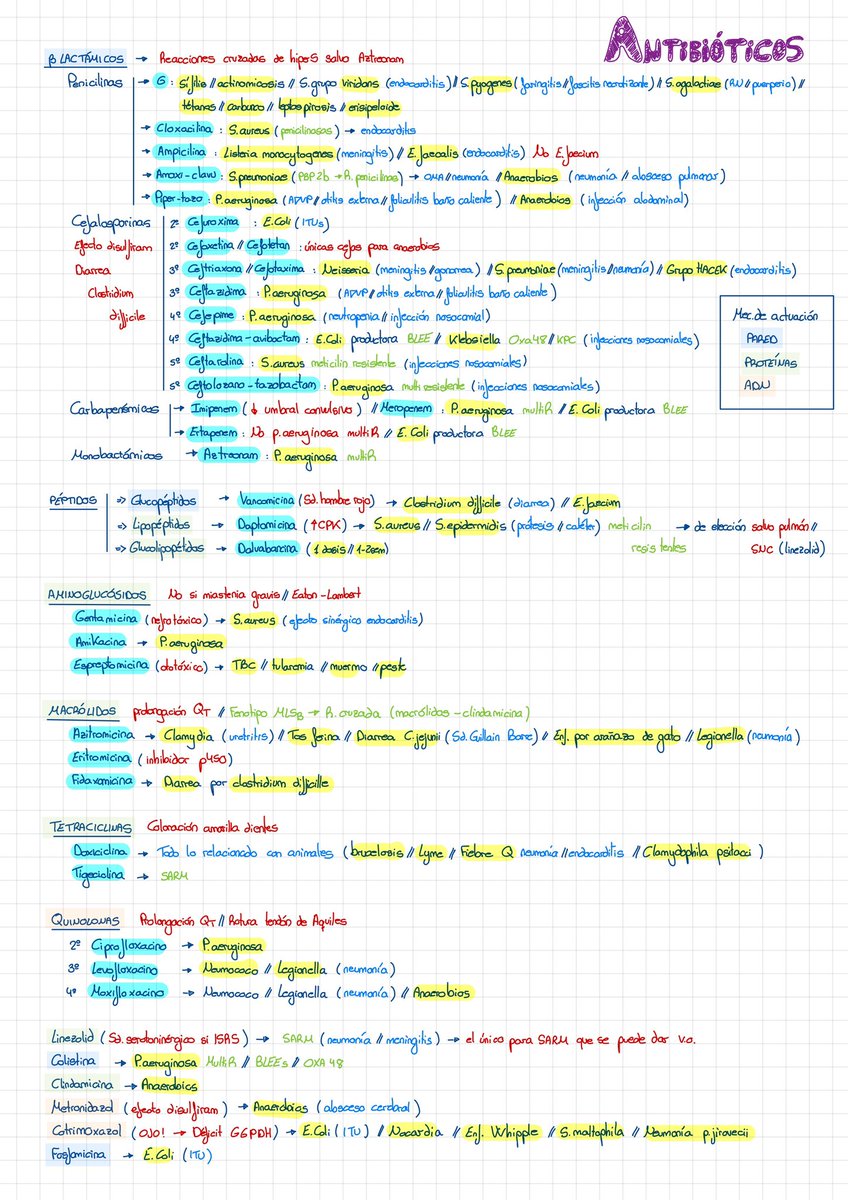 ANTIBIÓTICOS
β LACTÁMICOS → Reacciones cruzadas de hiperS salvo Aztreonam
Penicilinas → G: Sífilis // actinomicosis // S. grupo viridans (endocarditis) // S. pyogenes (faringitis // fascitis necrotizante) // S. agalactiae (RN // puerperio) //
tétanos // carbunco // leptospirosis // erisipeloide
→ Cloxacilina: S. aureus (penicilinasas) → endocarditis
→ Ampicilina: Listeria monocytogenes (meningitis) // E. faecalis (endocarditis) No E. faecium
→ Amoxi-clavu: S. pneumoniae (PBP2b → R. penicilinas) → OMA // neumonía // Anaerobios (neumonía // absceso pulmonar)
→ Piper-tazo: P. aeruginosa (ADVP // otitis externa // foliculitis baño caliente) // Anaerobios (infección abdominal)
Cefalosporinas 2ª Cefuroxima: E. Coli (ITUs)
Efecto disulfiram 2ª Cefoxetina // Cefotetan: únicas cefas para anaerobios
Diarrea 3ª Ceftriaxona // Cefotaxima: Neisseria (meningitis // gonorrea) // S. pneumoniae (meningitis // neumonía) // Grupo HACEK (endocarditis)
Clostridium 3ª Ceftazidima: P. aeruginosa (ADVP // otitis externa // foliculitis baño caliente)
difficile 4ª Cefepime: P. aeruginosa (neutropenia // infección nosocomial)
4ª Ceftazidima-avibactam: E. Coli productora BLEE // Klebsiella Oxa48 // KPC (infecciones nosocomiales)
5ª Ceftarolina: S. aureus meticilin resistente (infecciones nosocomiales)
5ª Ceftolozano-tazobactam: P. aeruginosa multi resistente (infecciones nosocomiales)
Mec. de actuación
PARED
PROTEÍNAS
ADN
Carbapenémicos → Imipenem (↓ umbral convulsivo) // Meropenem: P. aeruginosa multiR // E. Coli productora BLEE
→ Ertapenem: No p. aeruginosa multiR // E. Coli productora BLEE
Monobactámicos → Aztreonam: P. aeruginosa multiR
PÉPTIDOS => Glucopéptidos → Vancomicina (Sd. hombre rojo) → Clostridium difficile (diarrea) // E. faecium
=> Lipopéptidos → Daptomicina (↑CPK) → S. aureus // S. epidermidis (prótesis // catéter) meticilin resistentes → de elección salvo pulmón // SNC (linezolid)
=> Glucolipopétidos → Dalvabancina (1 dosis // 1-2sem)
AMINOGLUCÓSIDOS No si miastenia gravis // Eaton-Lambert
Gentamicina (nefrotóxico) → S. aureus (efecto sinérgico endocarditis)
Amikacina → P. aeruginosa
Espreptomicina (ototóxico) → TBC // tularemia // muermo // peste
MACRÓLIDOS prolongación QT // Fenotipo MLSB → R. cruzada (macrólidos-clindamicina)
Azitromicina → Clamydia (uretritis) // Tos ferina // Diarrea C. jejunii (Sd. Gillain Barre) // Enf. por arañazo de gato // Legionella (neumonía)
Eritromicina (inhibidor p450)
Fidaxomicina → Diarrea por clostridium difficille
TETRACICLINAS Coloración amarilla dientes
Doxiciclina → Todo lo relacionado con animales (brucelosis // Lyme // Fiebre Q neumonía // endocarditis // Clamydophila psitacci)
Tigeciclina → SARM
QUINOLONAS Prolongación QT // Rotura tendón de Aquiles
2ª Ciprofloxacino → P. aeruginosa
3ª Levofloxacino → Neumococo // Legionella (neumonía)
4ª Moxifloxacino → Neumococo // Legionella (neumonía) // Anaerobios
Linezolid (Sd. serotoninérgico si ISRS) → SARM (neumonía // meningitis) → el único para SARM que se puede dar v.o.
Colistina → P. aeruginosa MultiR // BLEEs // OXA 48
Clindamicina → Anaerobios
Metronidazol (efecto disulfiram) → Anaerobios (absceso cerebral)
Cotrimoxazol (OJO! → Déficit G6PDH) → E. Coli (ITU) // Nocardia // Enf. Whipple // S. maltophila // Neumonía p. jirovecii
Fosfomicina → E. Coli (ITU)